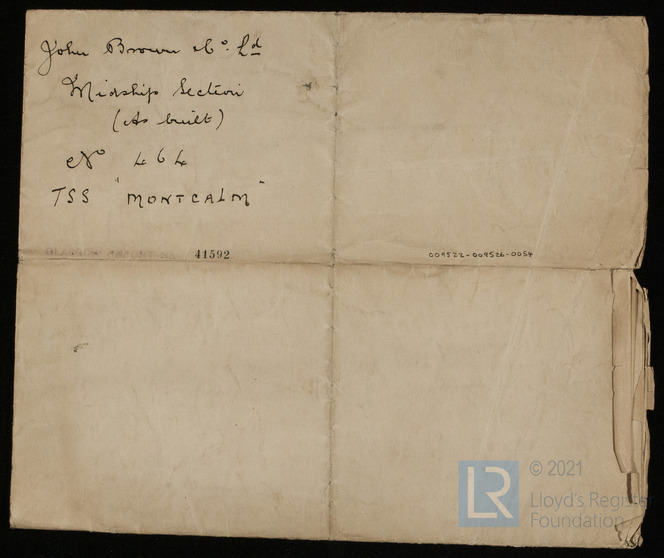 John Brown & Co. Ld
Midship Section
(As built)
No 464
TSS "MONTCALM"
41592
009522-009526-0054
LR
© 2021
Lloyd's Register
Foundation